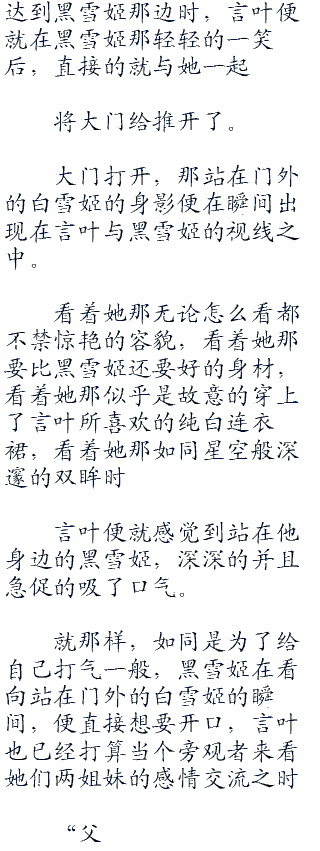 达到黑雪姬那边时，言叶便
就在黑雪姬那轻轻的一笑
后，直接的就与她一起
将大门给推开了。
大门打开，那站在门外
的白雪姬的身影便在瞬间出
现在言叶与黑雪姬的视线之
中。
看着她那无论怎么看都
不禁惊艳的容貌，看着她那
要比黑雪姬还要好的身材，
看着她那似乎是故意的穿上
了言叶所喜欢的纯白连衣
裙，看着她那如同星空般深
邃的双眸时
言叶便就感觉到站在他
身边的黑雪姬，深深的并且
急促的吸了口气。
就那样，如同是为了给
自己打气一般，黑雪姬在看
向站在门外的白雪姬的瞬
间，便直接想要开口，言叶
也已经打算当个旁观者来看
她们两姐妹的感情交流之时
“父